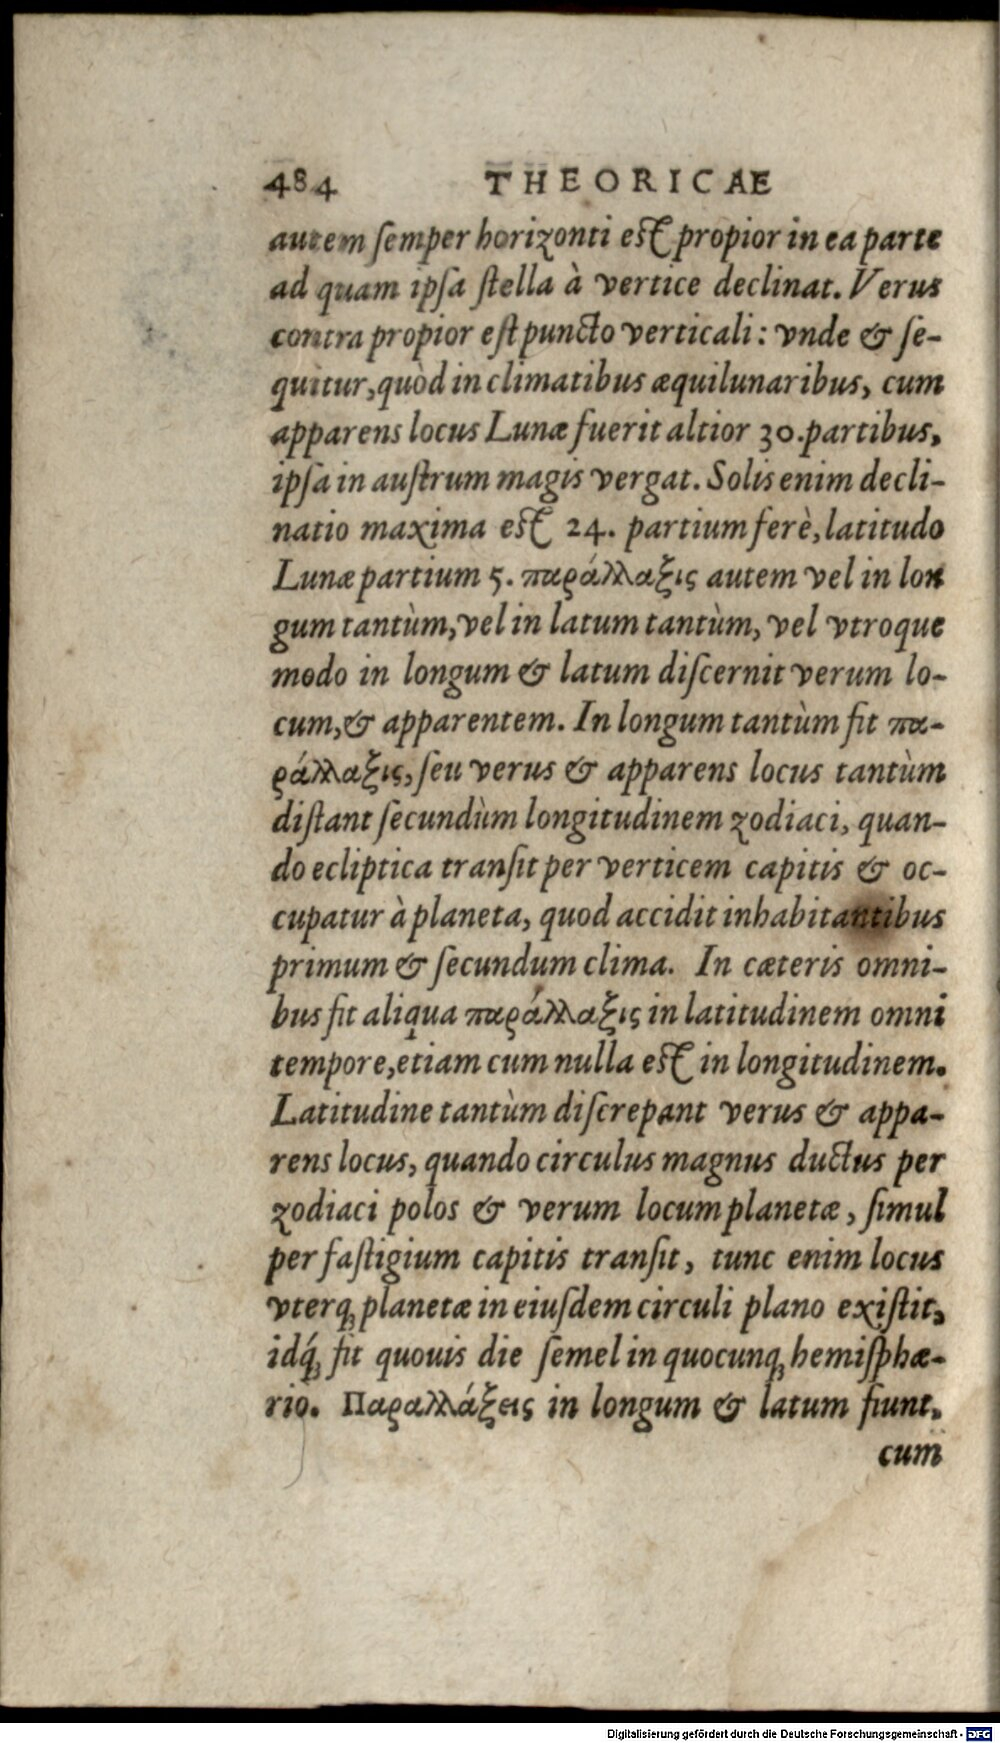 484 THEORICAE
autem ſemper horizonti eſt propior in ea parte
ad quam ipſa ſtella à vertice declinat. Verus
contra propior eſt puncto verticali: vnde & ſe-
quitur, quòd in climatibus æquilunaribus, cum
apparens locus Lunæ fuerit altior 30. partibus,
ipſa in auſtrum magis vergat. Solis enim decli-
natio maxima eſt 24. partium ferè, latitudo
Lunæ partium 5. παράλλαξις autem vel in lon
gum tantùm, vel in latum tantùm, vel vtroque
modo in longum & latum diſcernit verum lo-
cum, & apparentem. In longum tantùm fit πα-
ράλλαξις, ſeu verus & apparens locus tantùm
diſtant ſecundùm longitudinem zodiaci, quan-
do ecliptica tranſit per verticem capitis & oc-
cupatur à planeta, quod accidit inhabitantibus
primum & ſecundum clima. In cæteris omni-
bus fit aliqua παράλλαξις in latitudinem omni
tempore, etiam cum nulla eſt in longitudinem.
Latitudine tantùm diſcrepant verus & appa-
rens locus, quando circulus magnus ductus per
zodiaci polos & verum locum planetæ, ſimul
per faſtigium capitis tranſit, tunc enim locus
vterq́; planetæ in eiuſdem circuli plano exiſtit,
idq́; fit quouis die ſemel in quocunq; hemiſphæ-
rio. Παραλλάξεις in longum & latum fiunt,
cum
Digitalisierung gefördert durch die Deutsche Forschungsgemeinschaft - DFG